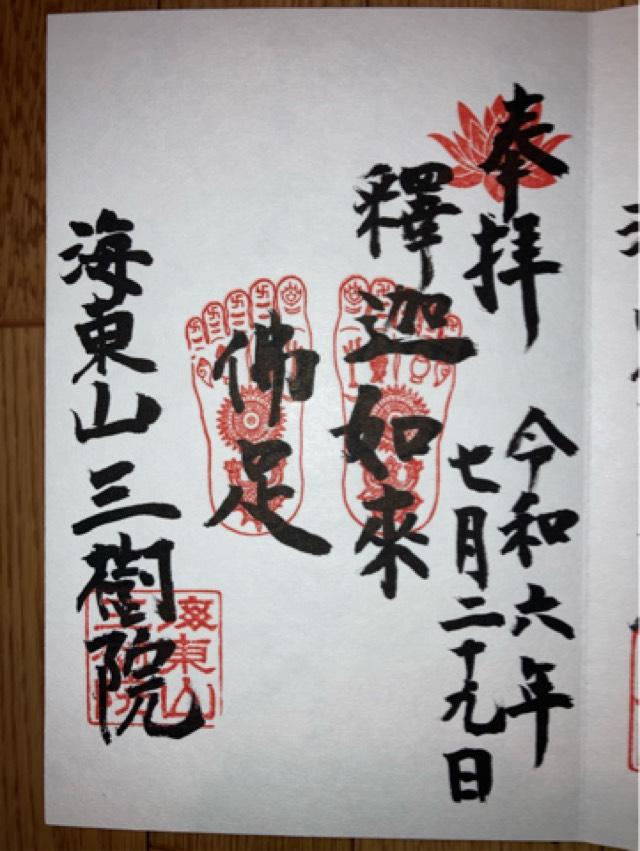 奉拝
令和六年
七月二十九日
釋迦如來
佛足
海東山三樹院
海東山
三樹院